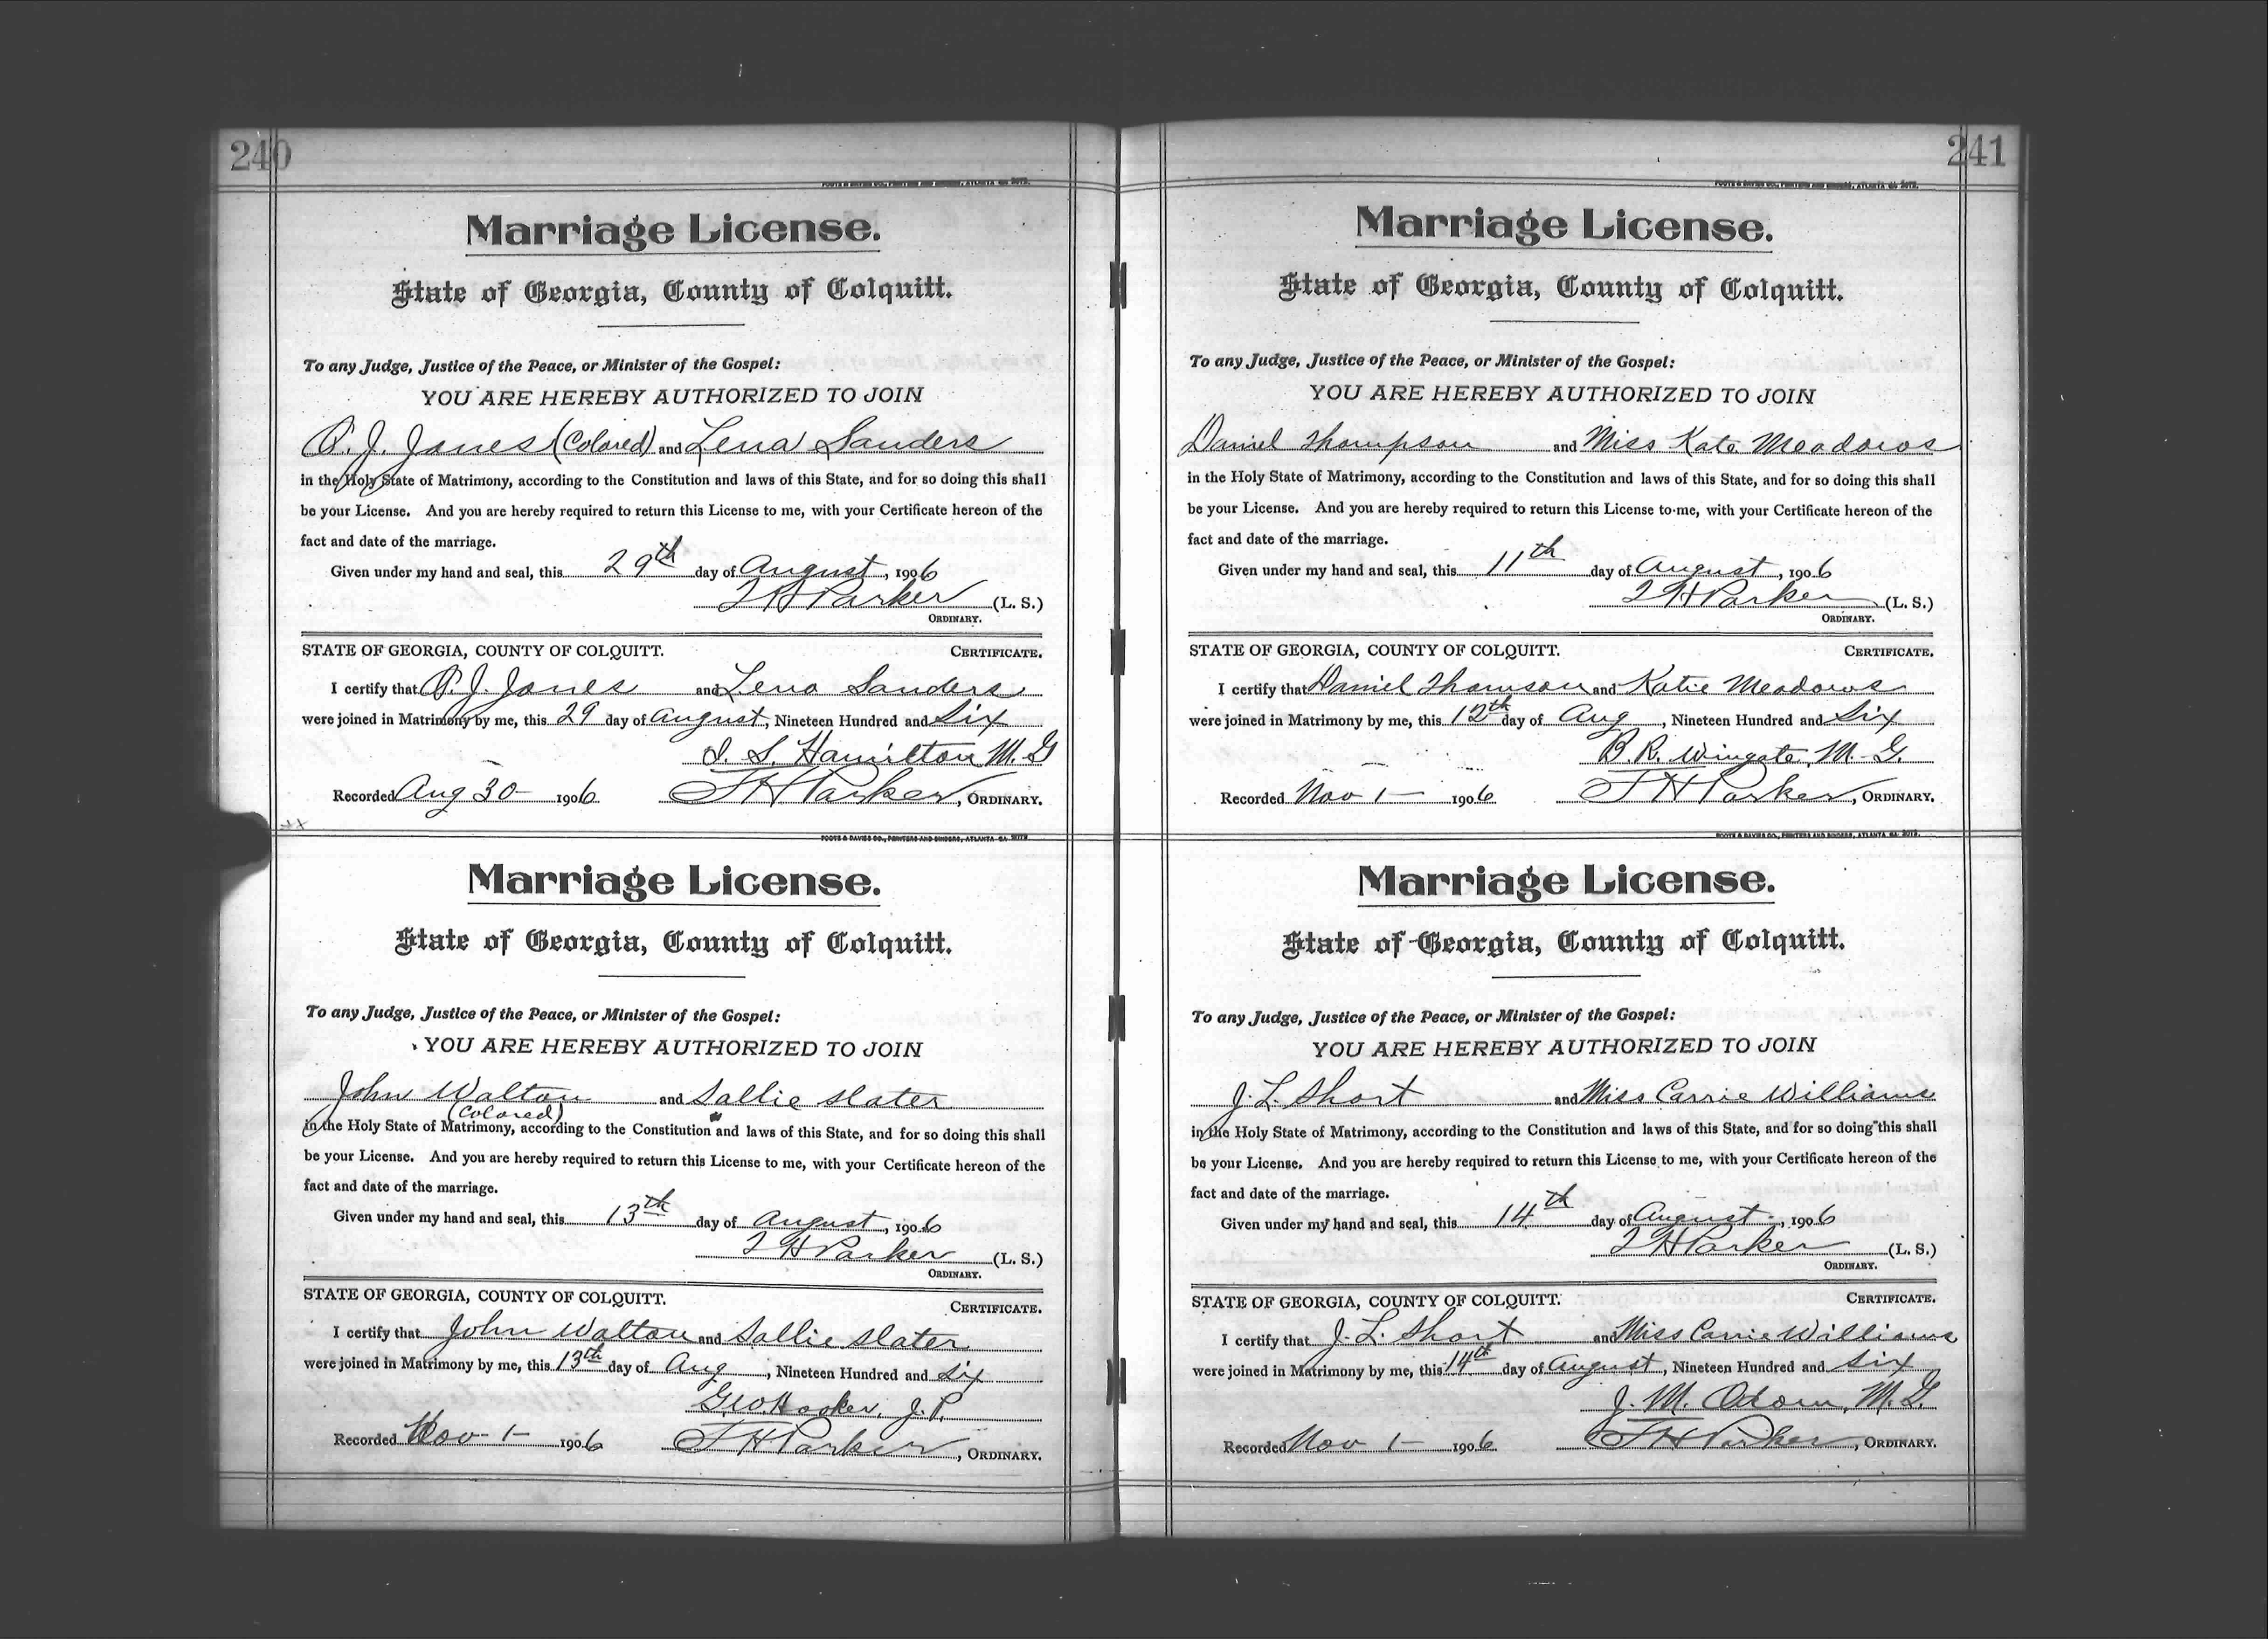 240
FOOTE & DAVIES CO., PRINTERS AND BINDERS, ATLANTA GA 3072.
Marriage License.
State of Georgia, County of Colquitt.
To any Judge, Justice of the Peace, or Minister of the Gospel:
YOU ARE HEREBY AUTHORIZED TO JOIN
J. Jones (Colored) and Lena Sanders
in the Holy State of Matrimony, according to the Constitution and laws of this State, and for so doing this shall
be your License. And you are hereby required to return this License to me, with your Certificate hereon of the
fact and date of the marriage.
Given under my hand and seal, this 29th day of August, 1906
T H Parker (L. S.)
ORDINARY.
STATE OF GEORGIA, COUNTY OF COLQUITT. CERTIFICATE.
I certify that J. Jones and Lena Sanders
were joined in Matrimony by me, this 29 day of August, Nineteen Hundred and Six
S. Hamilton M. G
Recorded Aug 30 - 1906 T H Parker, ORDINARY.
FOOTE & DAVIES CO., PRINTERS AND BINDERS, ATLANTA GA 3072
Marriage License.
State of Georgia, County of Colquitt.
To any Judge, Justice of the Peace, or Minister of the Gospel:
YOU ARE HEREBY AUTHORIZED TO JOIN
John Walton and Sallie Slater
(Colored)
in the Holy State of Matrimony, according to the Constitution and laws of this State, and for so doing this shall
be your License. And you are hereby required to return this License to me, with your Certificate hereon of the
fact and date of the marriage.
Given under my hand and seal, this 13th day of August, 1906
T H Parker (L. S.)
ORDINARY.
STATE OF GEORGIA, COUNTY OF COLQUITT. CERTIFICATE.
I certify that John Walton and Sallie Slater
were joined in Matrimony by me, this 13th day of Aug, Nineteen Hundred and Six
Geo. Hooker, J. P.
Recorded Nov - 1 - 1906 T H Parker, ORDINARY.
241
FOOTE & DAVIES CO., PRINTERS AND BINDERS, ATLANTA GA 3072.
Marriage License.
State of Georgia, County of Colquitt.
To any Judge, Justice of the Peace, or Minister of the Gospel:
YOU ARE HEREBY AUTHORIZED TO JOIN
Daniel Thompson and Miss Kate Meadows
in the Holy State of Matrimony, according to the Constitution and laws of this State, and for so doing this shall
be your License. And you are hereby required to return this License to me, with your Certificate hereon of the
fact and date of the marriage.
Given under my hand and seal, this 11th day of August, 1906
T H Parker (L. S.)
ORDINARY.
STATE OF GEORGIA, COUNTY OF COLQUITT. CERTIFICATE.
I certify that Daniel Thomson and Katie Meadows
were joined in Matrimony by me, this 12th day of Aug, Nineteen Hundred and Six
B. R. Wingate, M. G.
Recorded Nov 1 - 1906 T H Parker, ORDINARY.
FOOTE & DAVIES CO., PRINTERS AND BINDERS, ATLANTA GA 3072.
Marriage License.
State of Georgia, County of Colquitt.
To any Judge, Justice of the Peace, or Minister of the Gospel:
YOU ARE HEREBY AUTHORIZED TO JOIN
J. L. Short and Miss Carrie Williams
in the Holy State of Matrimony, according to the Constitution and laws of this State, and for so doing this shall
be your License. And you are hereby required to return this License to me, with your Certificate hereon of the
fact and date of the marriage.
Given under my hand and seal, this 14th day of August, 1906
T H Parker (L. S.)
ORDINARY.
STATE OF GEORGIA, COUNTY OF COLQUITT. CERTIFICATE.
I certify that J. L. Short and Miss Carrie Williams
were joined in Matrimony by me, this 14th day of August, Nineteen Hundred and Six
J. M. Odom, M. G.
Recorded Nov 1 - 1906 T H Parker, ORDINARY.